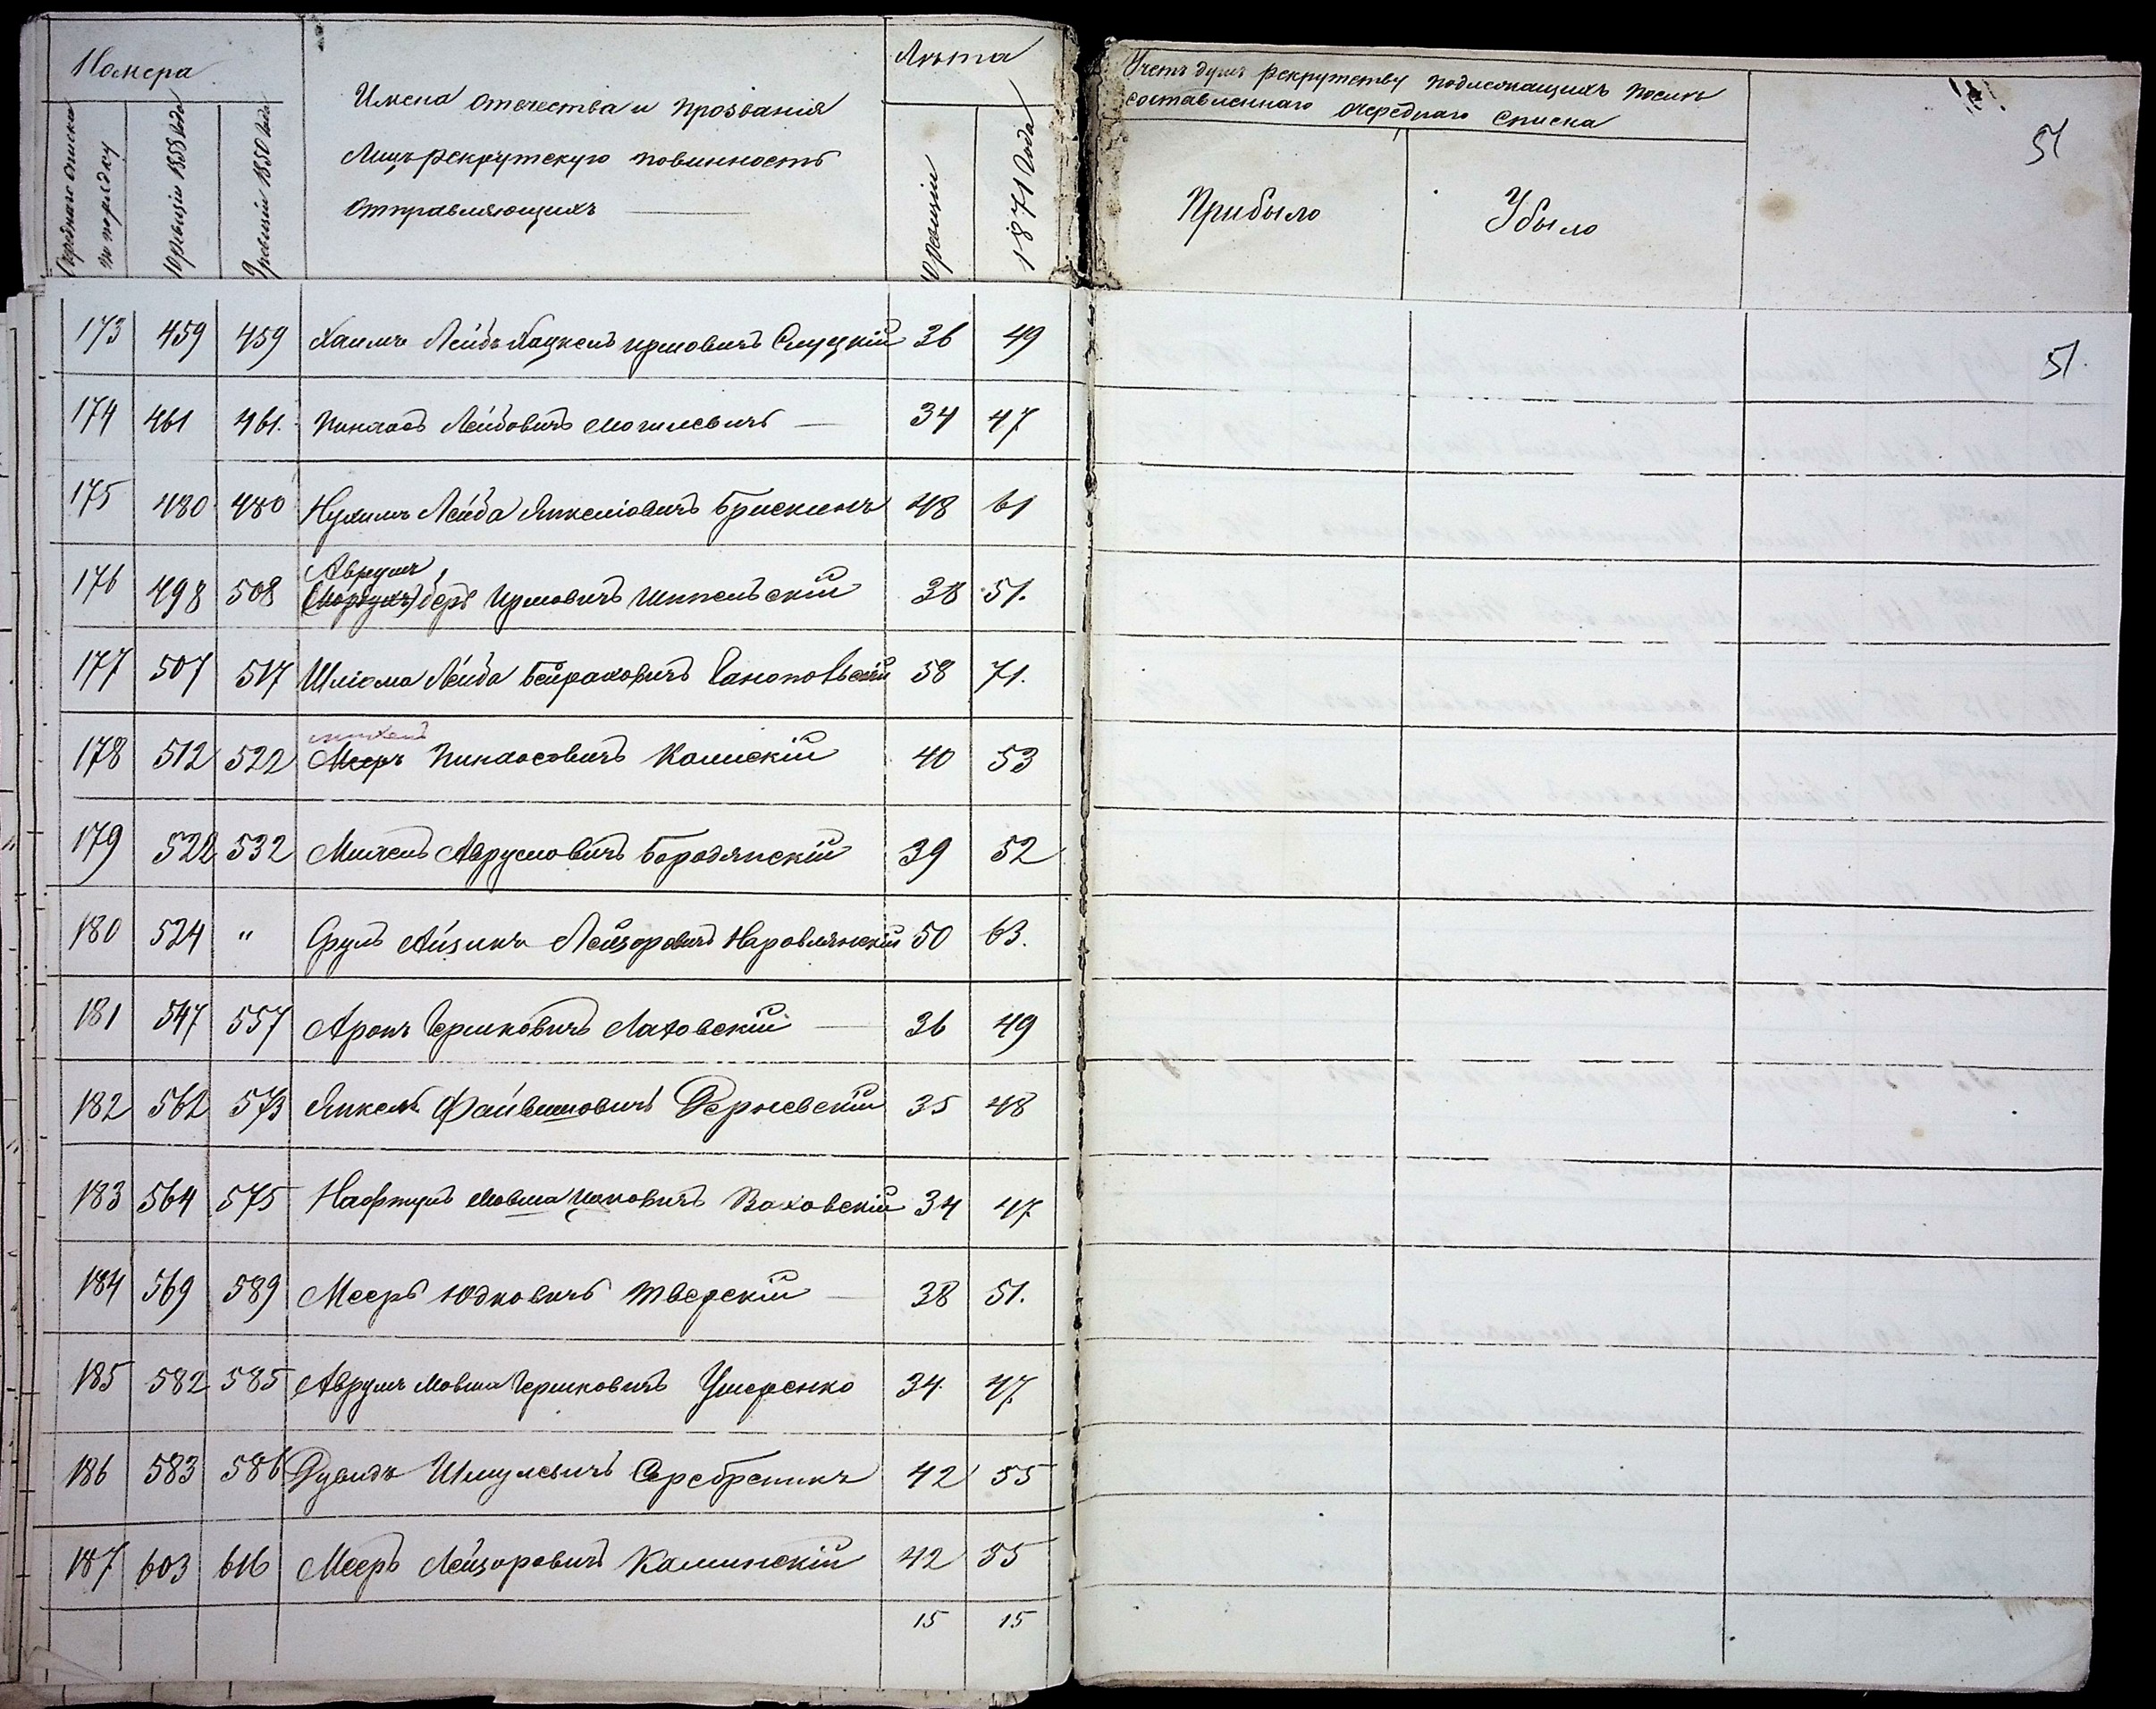 Номера
Очереднаго списка по порядку
10 ревизіи 1858 года
9 ревизіи 1850 года
Имена отечества и прозванія
Лицъ рекрутскую повинность
отправляющихъ
Лѣта
10 ревизіи
1871 года
Учетъ душъ рекрутству подлежащихъ послѣ
составленнаго очереднаго списка
Прибыло
Убыло
51
51.
173 459 459 Хаимъ Лейбъ Хацкель Иршовичъ Слуцкій 36 49
174 461 461. Пинхосъ Лейбовичъ Могилевичъ — 34 47
175 480 480 Нухимъ Лейба Янкеліовичъ Брискинъ 48 61
Аврумъ
176 498 508 (Мордухъ) беръ Иршовичъ Шпильскій 38 51.
177 507 517 Шліома Лейба Бейраховичъ Саноповскій 58 71.
178 512 522 Мееръ Пинхосовичъ Камскій 40 53
179 522 532 Михель Аврумовичъ Бородянскій 39 52
180 524 " Сруль Айзикъ Лейзоровичъ Наровлянскій 50 63.
181 547 557 Аронъ Гершковичъ Лаховскій — 36 49
182 562 573 Янкель Файвишовичъ Дерневскій 35 48
183 564 575 Нафтулъ Мовша Ицковичъ Ваховскій 34 47
184 569 589 Мееръ Юдковичъ Тверскій — 38 51.
185 582 585 Аврумъ Мовша Гершковичъ Ушеренко 34. 47.
186 583 586 Дувидъ Шмулевичъ Серебреникъ 42 55
187 603 616 Мееръ Лейзоровичъ Каминскій 42 55
15 15